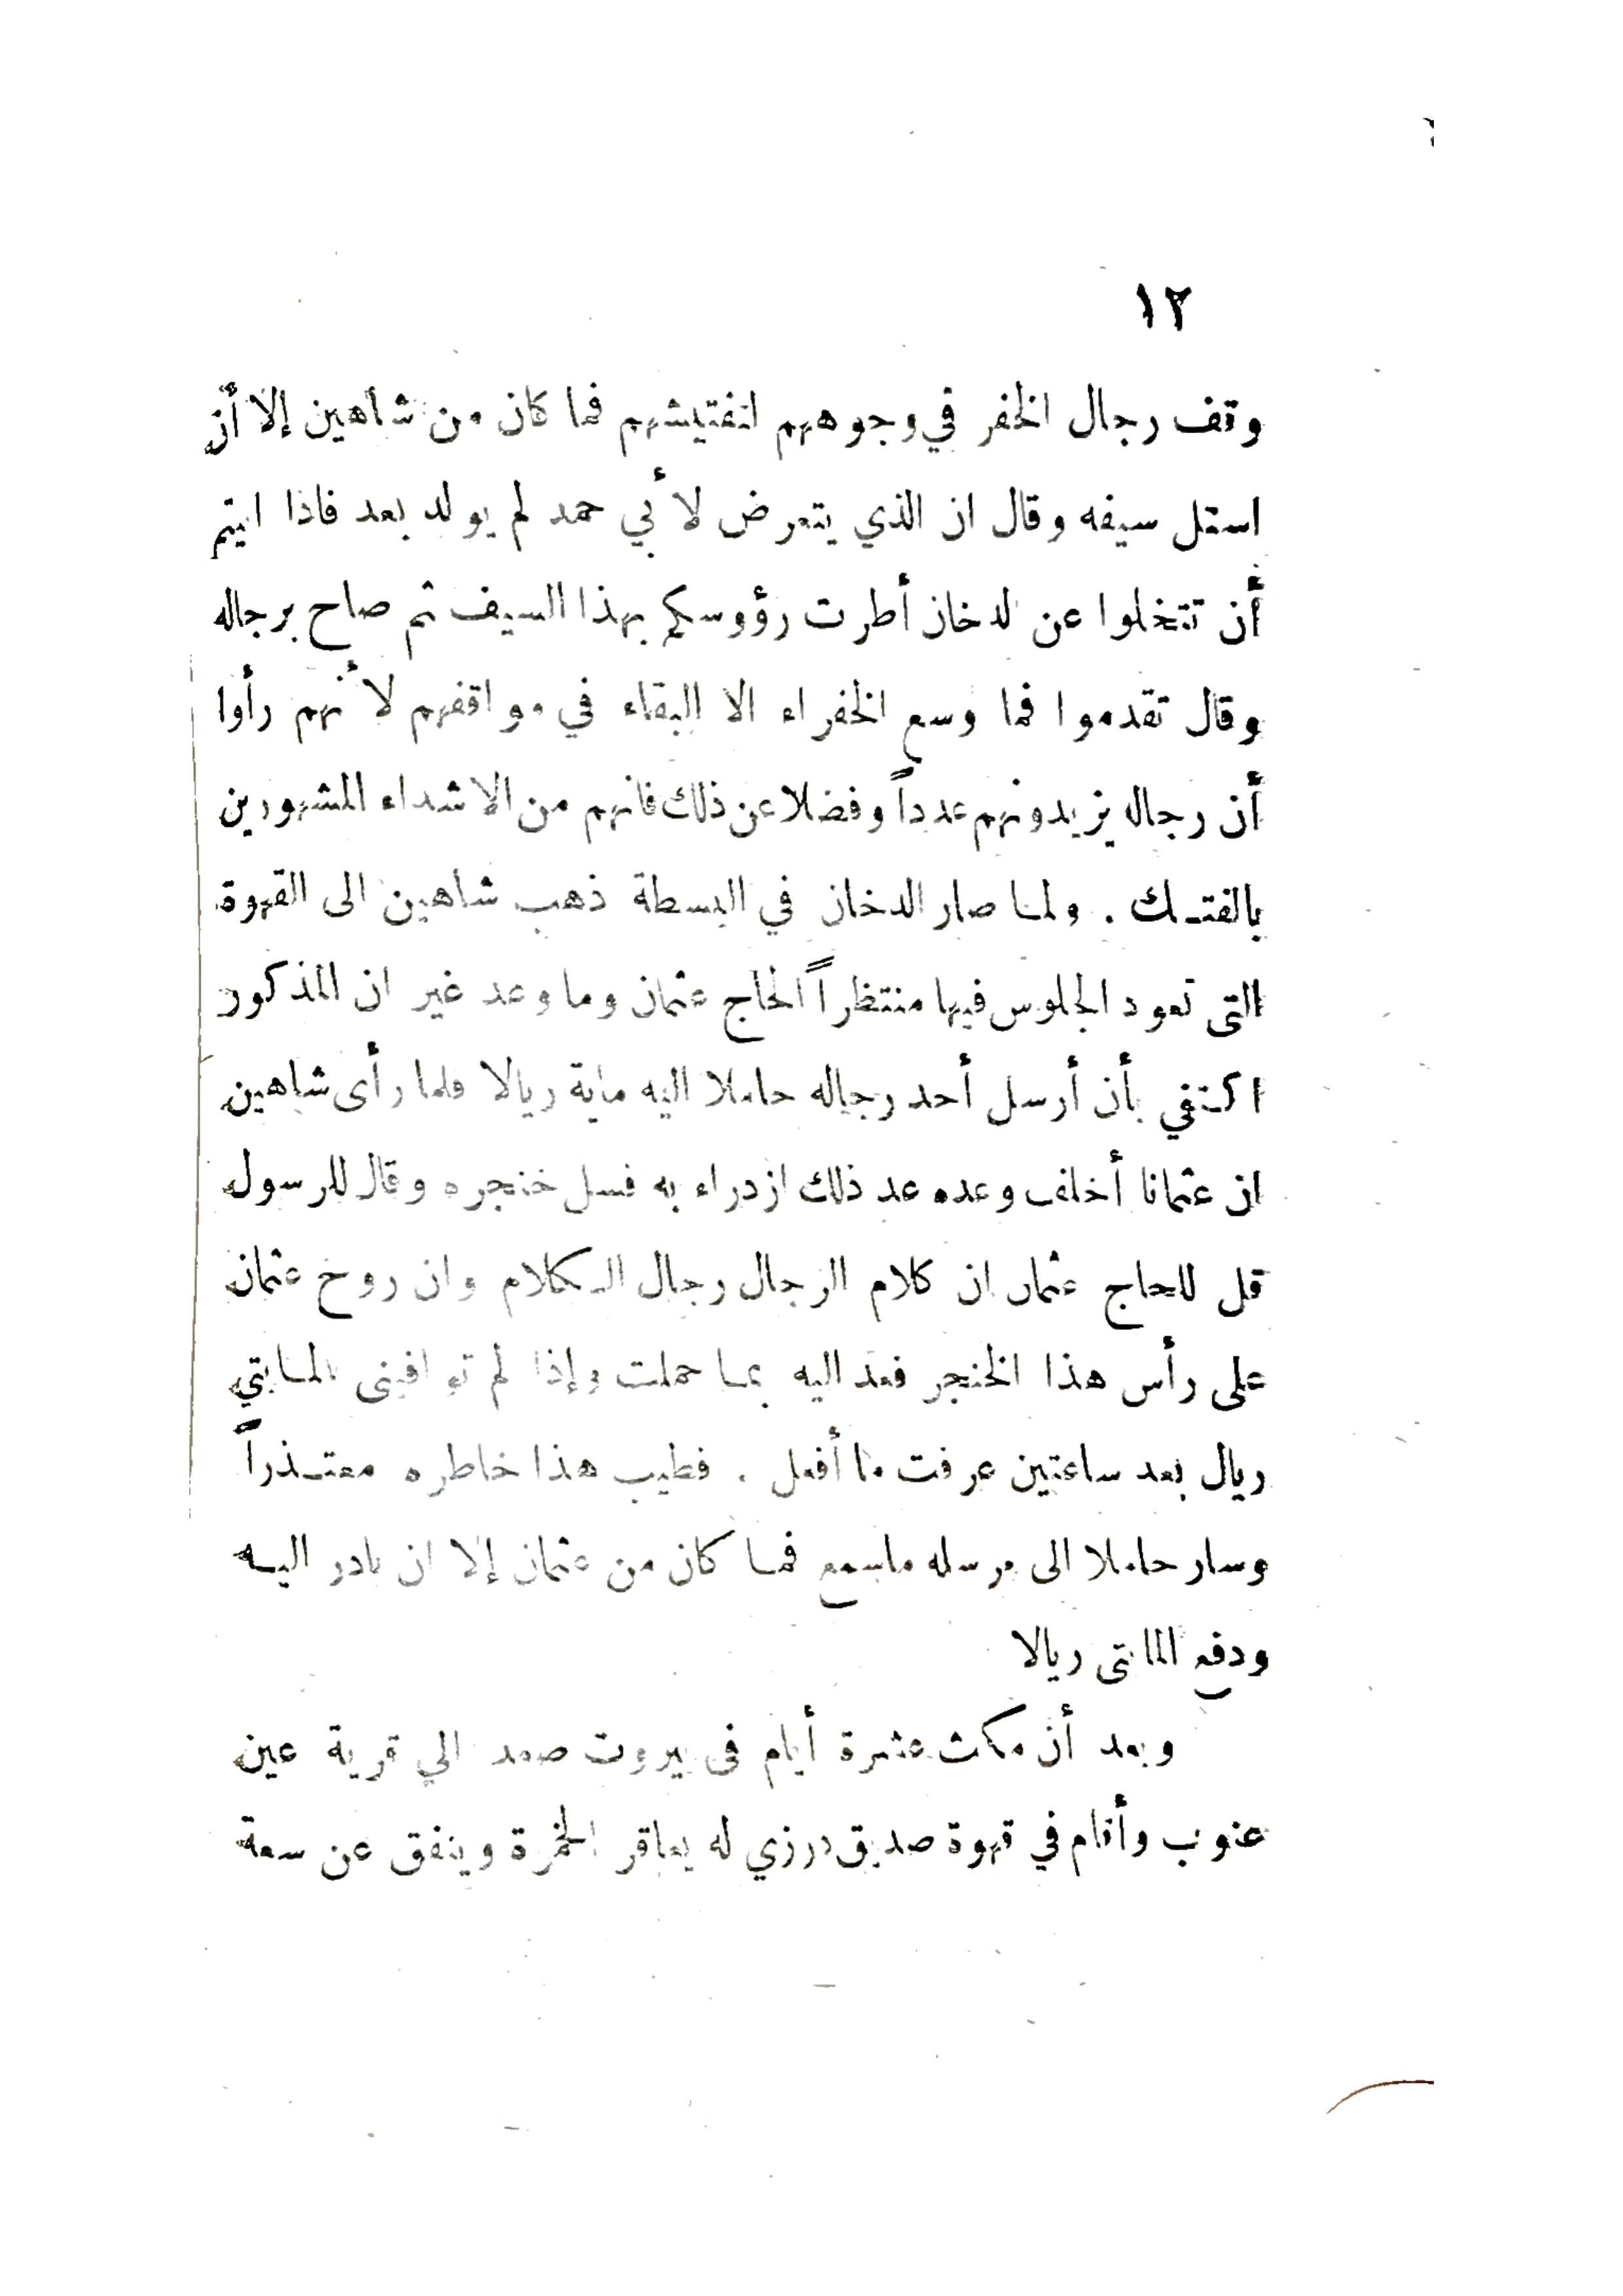 ١٢
وقف رجال الخفر في وجوههم لتفتيشهم فما كان من شاهين إلا أن
استل سيفه وقال ان الذي يتعرض لأبي حمد لم يولد بعد فاذا ابيتم
أن تتخلوا عن الدخان أطرت رؤوسكم بهذا السيف ثم صاح برجاله
وقال تقدموا فما وسع الخفراء الا البقاء في مواقفهم لأنهم رأوا
أن رجاله يزيدونهم عدداً وفضلا عن ذلك فانهم من الاشداء المشهورين
بالفتـك . ولما صار الدخان في البسطة ذهب شاهين الى القهوة
التى تعود الجلوس فيها منتظراً الحاج عثمان وما وعد غير ان المذكور
اكتفي بأن أرسل أحد رجاله حاملا اليه ماية ريالا فلما رأى شاهين
ان عثمانا أخلف وعده عد ذلك ازدراء به فسل خنجره وقال للرسول
قل للحاج عثمان ان كلام الرجال رجال الـكلام وان روح عثمان
على رأس هذا الخنجر فعد اليه بما حملت وإذا لم توافينى بالمايتي
ريال بعد ساعتين عرفت ما أفعل . فطيب هذا خاطره معتـذراً
وسار حاملا الى مرسله ماسمع فما كان من عثمان إلا ان بادر اليه
ودفع المايتى ريالا
وبعد أن مكث عشرة أيام فى بيروت صعد الي قرية عين
عنوب وأقام في قهوة صديق درزي له يعاقر الخمرة وينفق عن سعة